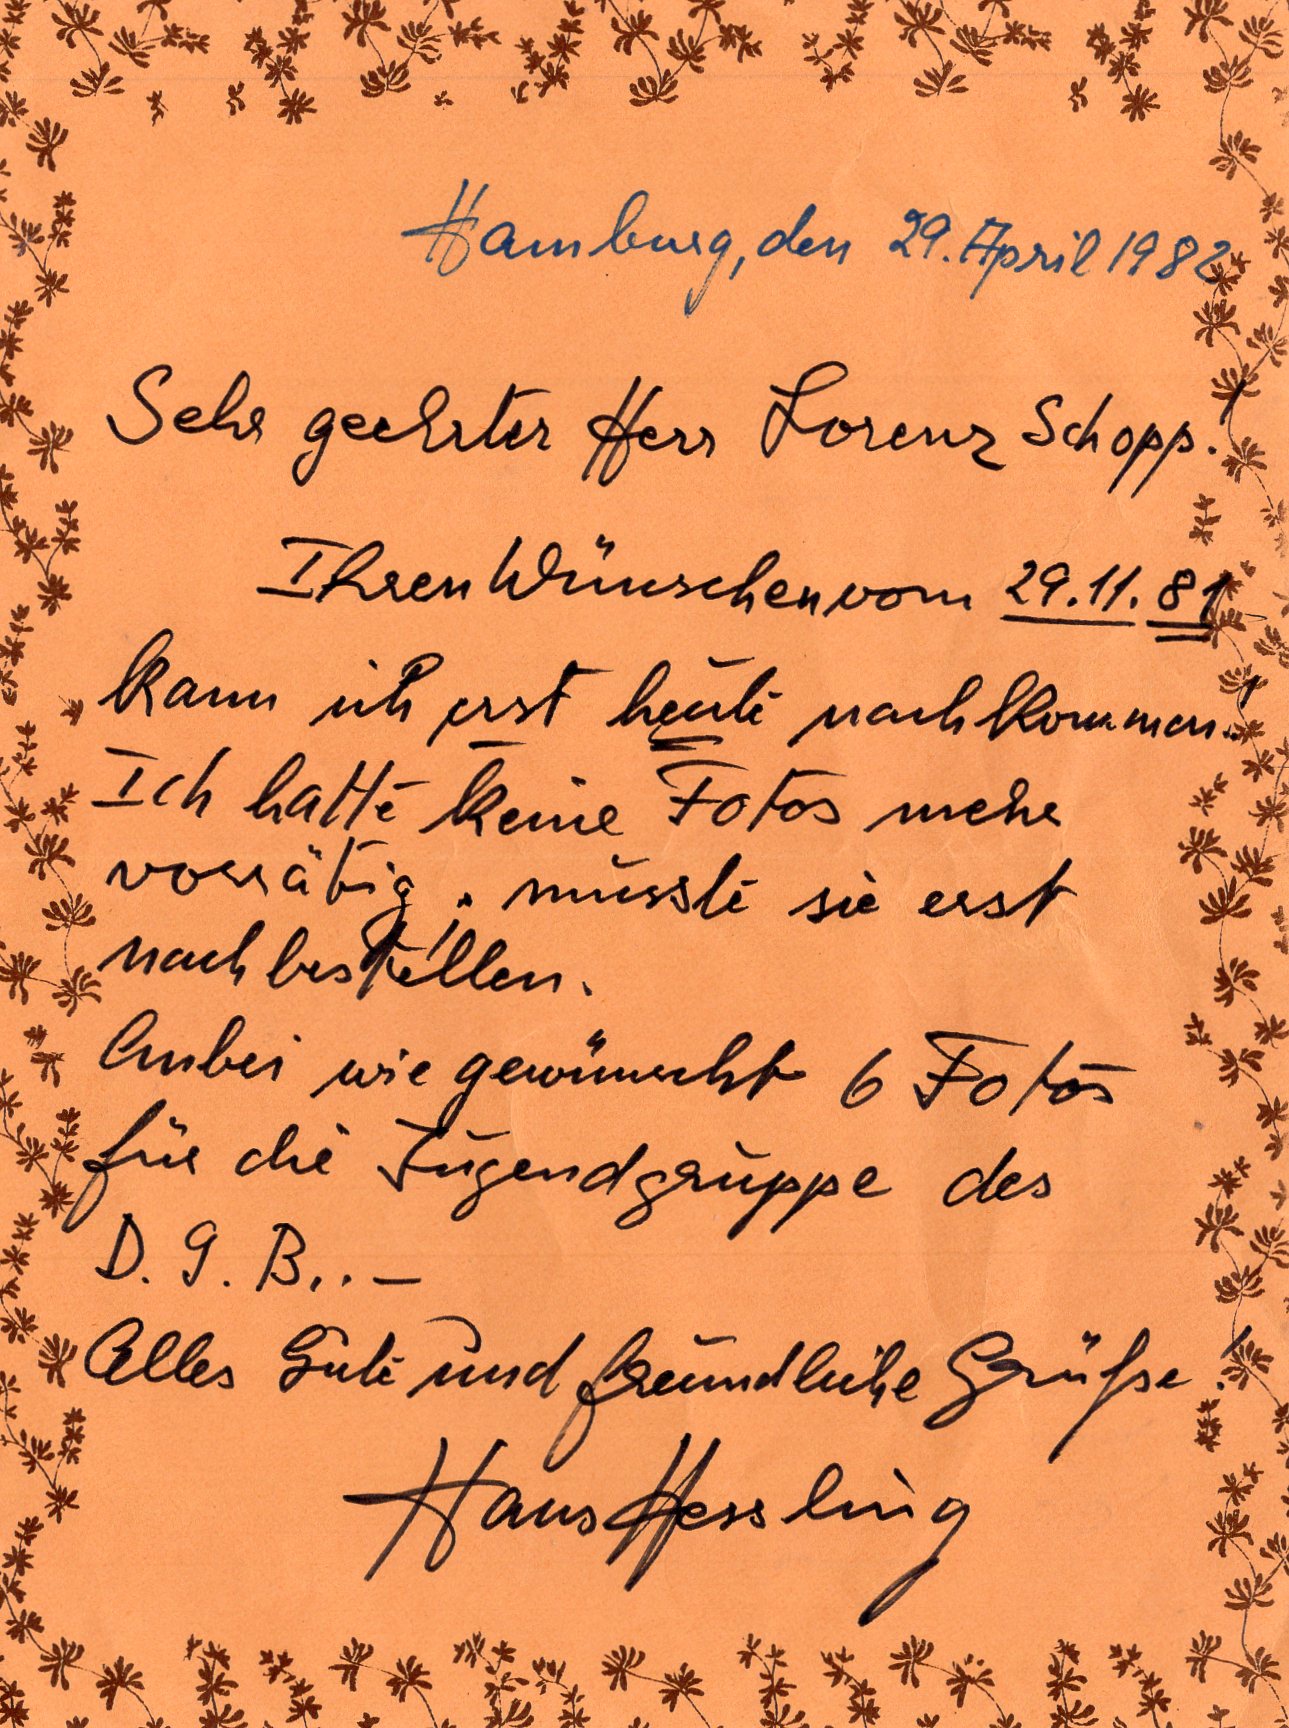 Hamburg, den 29. April 1982
Sehr geehrter Herr Lorenz Schopp!
Ihren Wünschen vom 29.11.81
kann ich erst heute nachkommen!
Ich hatte keine Fotos mehr
vorrätig, musste sie erst
nachbestellen.
Anbei wie gewünscht 6 Fotos
für die Jugendgruppe des
D. G. B.. –
Alles Gute und freundliche Grüße!
Hans Hessling